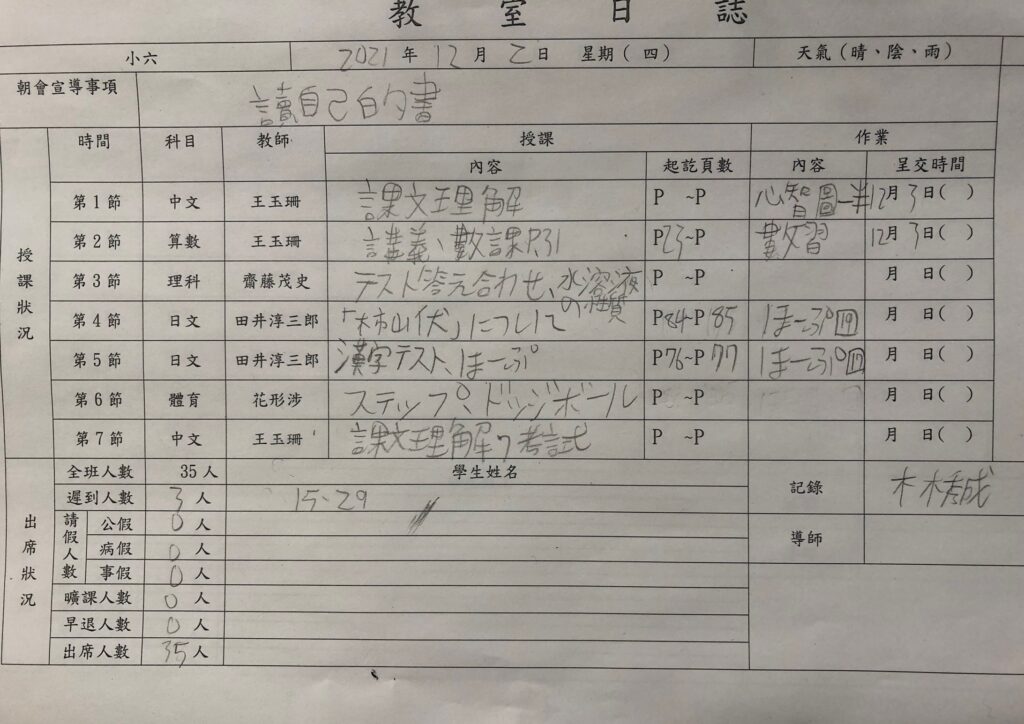 教室日誌
小六 2021年 12月 2日 星期(四) 天氣(晴、陰、雨)
朝會宣導事項 讀自己的書
授課狀況 時間 科目 教師 授課 作業
內容 起訖頁數 內容 呈交時間
第1節 中文 王玉珊 課文理解 P ~P 心智圖一半 12月3日( )
第2節 算數 王玉珊 講義、數課P.31 P23~P 數習 12月3日( )
第3節 理科 齋藤茂史 テスト答え合わせ、水溶液の性質 P ~P 月 日( )
第4節 日文 田井淳三郎 「柿山伏」について P84~P85 ほーぷ19 月 日( )
第5節 日文 田井淳三郎 漢字テスト、ほーぷ P76~P77 ほーぷ17 月 日( )
第6節 體育 花形涉 ステップ、ドッジボール P ~P 月 日( )
第7節 中文 王玉珊 課文理解 考試 P ~P 月 日( )
出席狀況 全班人數 35人 學生姓名
遲到人數 3人 15、29
請假人數 公假 0人
病假 0人
事假 0人
曠課人數 0人
早退人數 0人
出席人數 35人
記錄
導師